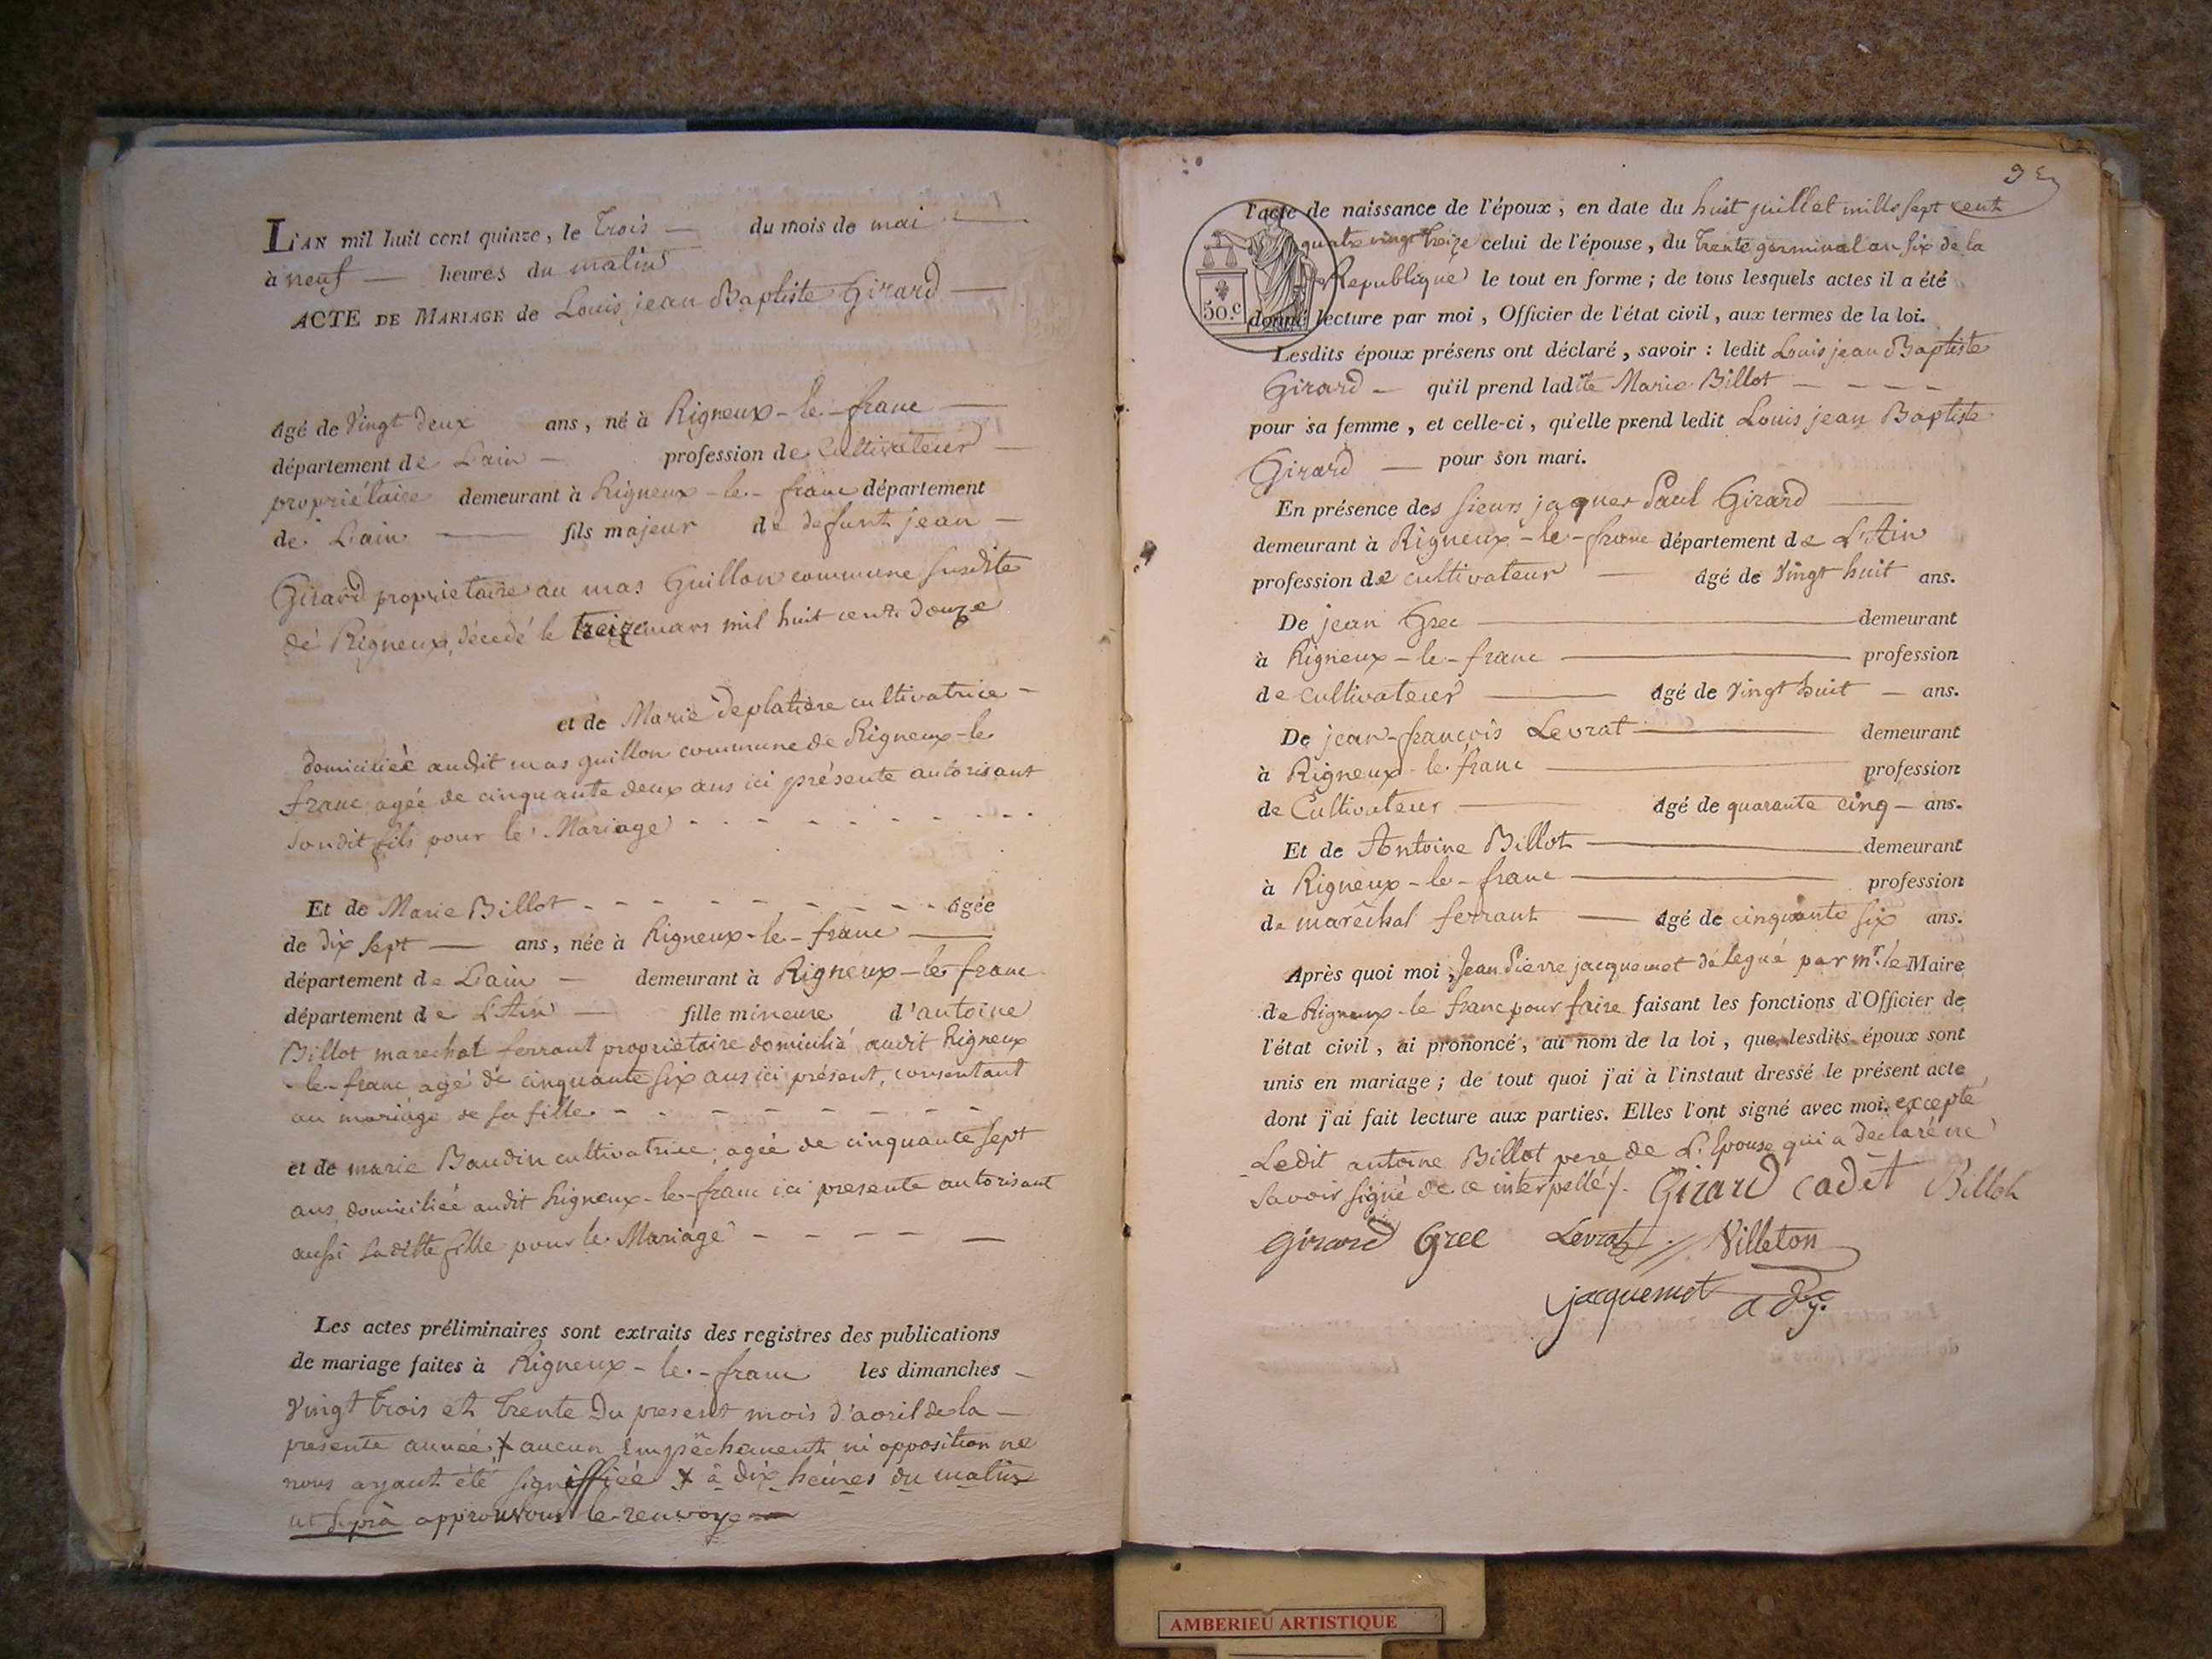 L'AN mil huit cent quinze, le trois — du mois de mai —
à neuf — heures du matin
ACTE DE MARIAGE de Louis jean Baptiste Girard —
âgé de vingt deux ans, né à Rigneux-le-franc —
département de L'ain — profession de Cultivateur —
propriétaire demeurant à Rigneux-le-franc département
de L'ain — fils majeur de defunt jean —
Girard proprietaire au mas Guillon commune susdite
de Rigneux, décedé le treize mars mil huit cent douze
et de Marie deplatiere cultivatrice —
domiciliée audit mas guillon commune de Rigneux-le
franc, agée de cinquante deux ans ici présente autorisant
sondit fils pour le Mariage - - - - - - - - - -
Et de Marie Billot - - - - - - - - - âgée
de dix sept — ans, née à Rigneux-le-franc —
département de L'ain — demeurant à Rigneux-le-franc
département de L'Ain — fille mineure d'antoine
Billot marechal ferrant propriétaire domicilié audit Rigneux
-le-franc agé de cinquante six ans ici présent, consentant
au mariage de sa fille - - - - - - - -
et de marie Baudin cultivatrice, agée de cinquante sept
ans, domiciliée audit Rigneux-le-franc ici presente autorisant
aussi sa ditte fille pour le Mariage - - - - —
Les actes préliminaires sont extraits des registres des publications
de mariage faites à Rigneux-le-franc les dimanches —
vingt trois et trente du present mois d'avril de la —
presente année, X aucun empêchement ni opposition ne
nous ayant été signiffiée X à dix heures du matin
ut suprà approuvons le renvoye —
95
50.c
l'acte de naissance de l'époux, en date du huit juillet mille sept cent
quatre vingt treize celui de l'épouse, du trente germinal an six de la
Republique le tout en forme; de tous lesquels actes il a été
donné lecture par moi, Officier de l'état civil, aux termes de la loi.
Lesdits époux présens ont déclaré, savoir: ledit Louis jean Baptiste
Girard — qu'il prend ladite Marie Billot - - - -
pour sa femme, et celle-ci, qu'elle prend ledit Louis jean Baptiste
Girard — pour son mari.
En présence des sieurs jaques Paul Girard —
demeurant à Rigneux-le-franc département de L'Ain
profession de cultivateur — âgé de vingt huit ans.
De jean Grec — demeurant
à Rigneux-le-franc — profession
de cultivateur — âgé de vingt huit — ans.
De jean-françois Levrat — demeurant
à Rigneux-le-franc — profession
de Cultivateur — âgé de quarante cinq — ans.
Et de Antoine Billot — demeurant
à Rigneux-le-franc — profession
de maréchal ferrant — âgé de cinquante six ans.
Après quoi moi, Jean Pierre jacquemet délegué par mr. le Maire
de Rigneux-le franc pour faire faisant les fonctions d'Officier de
l'état civil, ai prononcé, au nom de la loi, que lesdits époux sont
unis en mariage; de tout quoi j'ai à l'instaut dressé le présent acte
dont j'ai fait lecture aux parties. Elles l'ont signé avec moi. excepté
Ledit antoine Billot pere de L'Epouse qui a declaré ne
savoir signé de ce interpellé /. Girard cadèt Billot
girard Grec Levrat Villeton
jacquemet adj.
AMBERIEU ARTISTIQUE